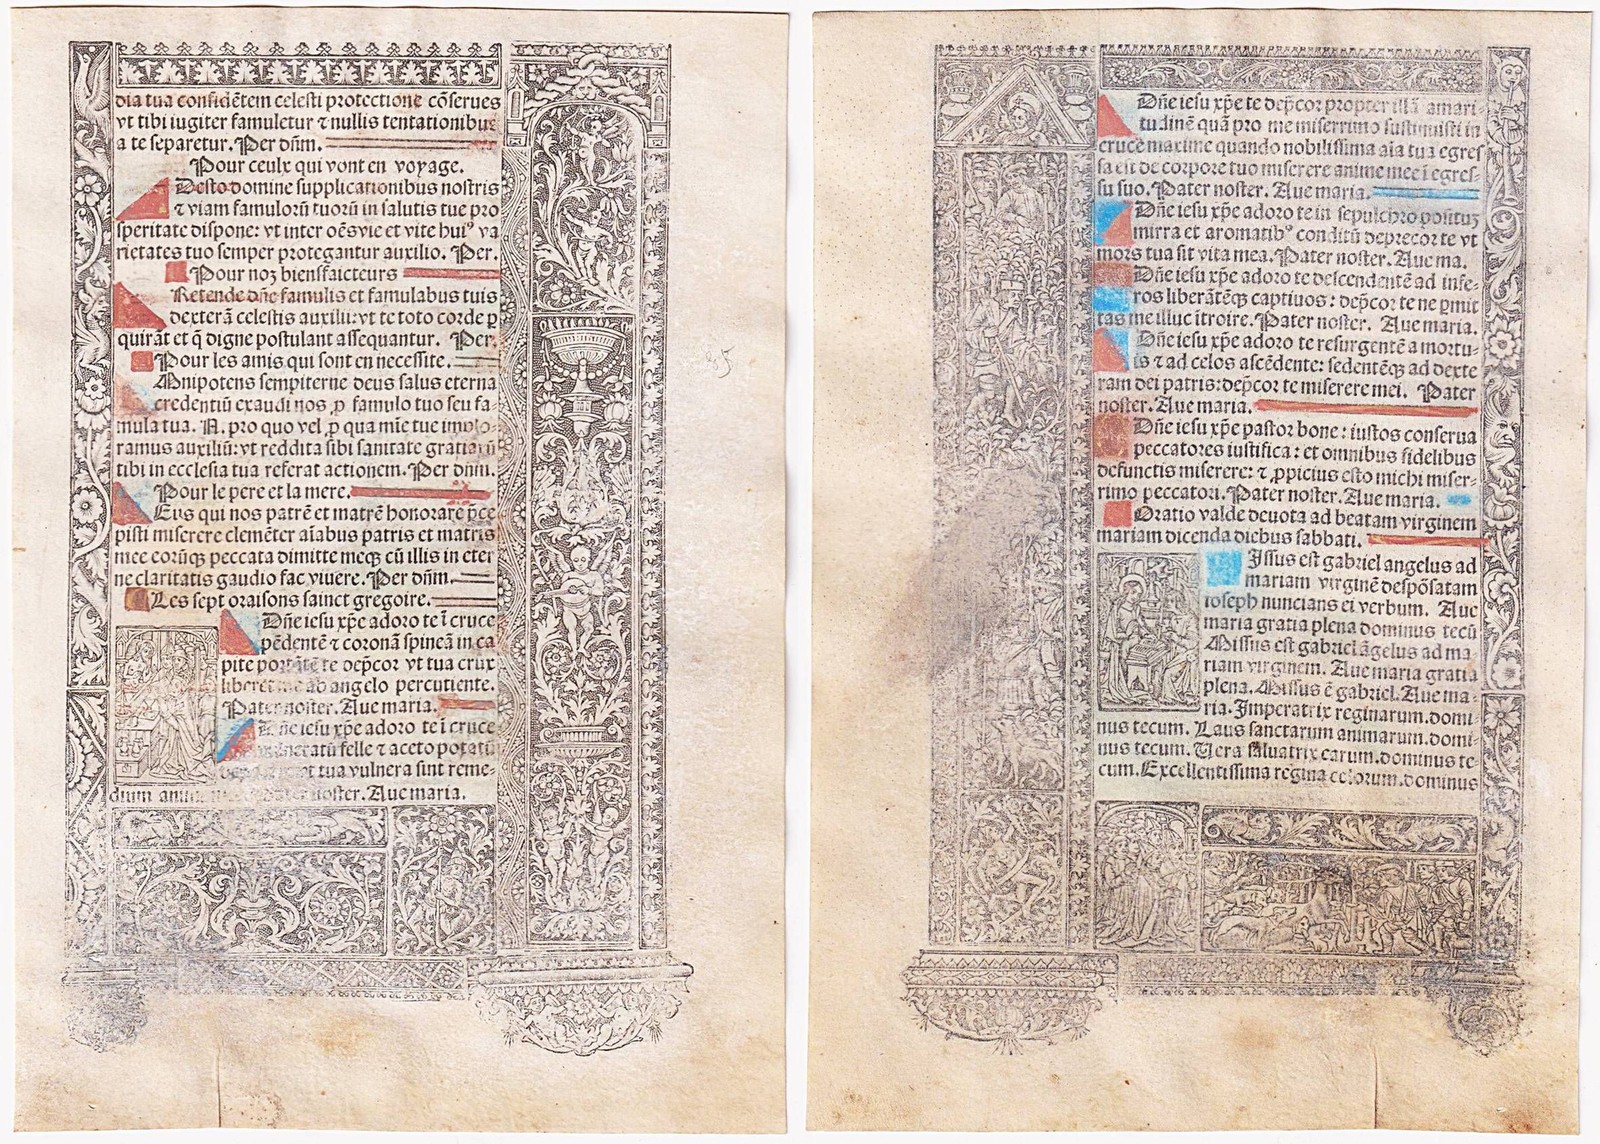 dia tua confidētem celesti protectione cōserues
vt tibi iugiter famuletur ⁊ nullis tentationibus
a te separetur. Per dn̄m.
Pour ceulx qui vont en voyage.
Desto domine supplicationibus nostris
⁊ viam famulorū tuorū in salutis tue pro
speritate dispone: vt inter oēs vie et vite huiꝰ va
rietates tuo semper protegantur auxilio. Per.
Pour noz bienffaicteurs
Retende dn̄e famulis et famulabus tuis
dexterā celestis auxilii: vt te toto corde ꝑ
quirāt et q̄ digne postulant assequantur. Per.
Pour les amis qui sont en necessite.
Mnipotens sempiterne deus salus eterna
credentiū exaudi nos ꝓ famulo tuo seu fa
mula tua. N. pro quo vel ꝓ qua mīe tue implo-
ramus auxiliū: vt reddita sibi sanitate gratiarū
tibi in ecclesia tua referat actionem. Per dn̄m.
Pour le pere et la mere.
Eus qui nos patrē et matrē honorare p̄ce
pisti miserere clemēter aīabus patris et matris
mee eorūqꝫ peccata dimitte meqꝫ cū illis in eter
ne claritatis gaudio fac viuere. Per dn̄m.
Les sept oraisons sainct gregoire.
Dn̄e iesu xp̄e adoro te ī cruce
pēdentē ⁊ coronā spineā in ca
pite portātē te dep̄cor vt tua crux
liberet me ab angelo percutiente.
Pater noster. Aue maria.
Dn̄e iesu xp̄e adoro te ī cruce
vulneratū felle ⁊ aceto potatū
tua vulnera sint reme-
dium anime mee. Pater noster. Aue maria.
85
Dn̄e iesu xp̄e te dep̄cor propter illā amari-
tudinē quā pro me miserrimo sustinuisti in
cruce maxime quando nobilissima aīa tua egres
sa est de corpore tuo miserere anime mee ī egres-
su suo. Pater noster. Aue maria.
Dn̄e iesu xp̄e adoro te in sepulchro positum
mirra et aromatibꝰ conditū deprecor te vt
mors tua sit vita mea. Pater noster. Aue ma.
Dn̄e iesu xp̄e adoro te descendentē ad infe-
ros liberātēqꝫ captiuos: dep̄cor te ne ꝑmit
tas me illuc ītroire. Pater noster. Aue maria.
Dn̄e iesu xp̄e adoro te resurgentē a mortu-
is ⁊ ad celos ascēdente: sedentēqꝫ ad dexte
ram dei patris: dep̄cor te miserere mei. Pater
noster. Aue maria.
Dn̄e iesu xp̄e pastor bone: iustos conserua
peccatores iustifica: et omnibus fidelibus
defunctis miserere: ⁊ ꝓpicius esto michi miser-
rimo peccatori. Pater noster. Aue maria.
Oratio valde deuota ad beatam virginem
mariam dicenda diebus sabbati.
Issus est gabriel angelus ad
mariam virginē despōsatam
ioseph nuncians ei verbum. Aue
maria gratia plena dominus tecū
Missus est gabriel āgelus ad ma-
riam virginem. Aue maria gratia
plena. Missus ē gabriel. Aue ma-
ria. Imperatrix reginarum. domi-
nus tecum. Laus sanctarum animarum. domi-
nus tecum. Vera saluatrix earum. dominus te-
cum. Excellentissima regina celorum. dominus